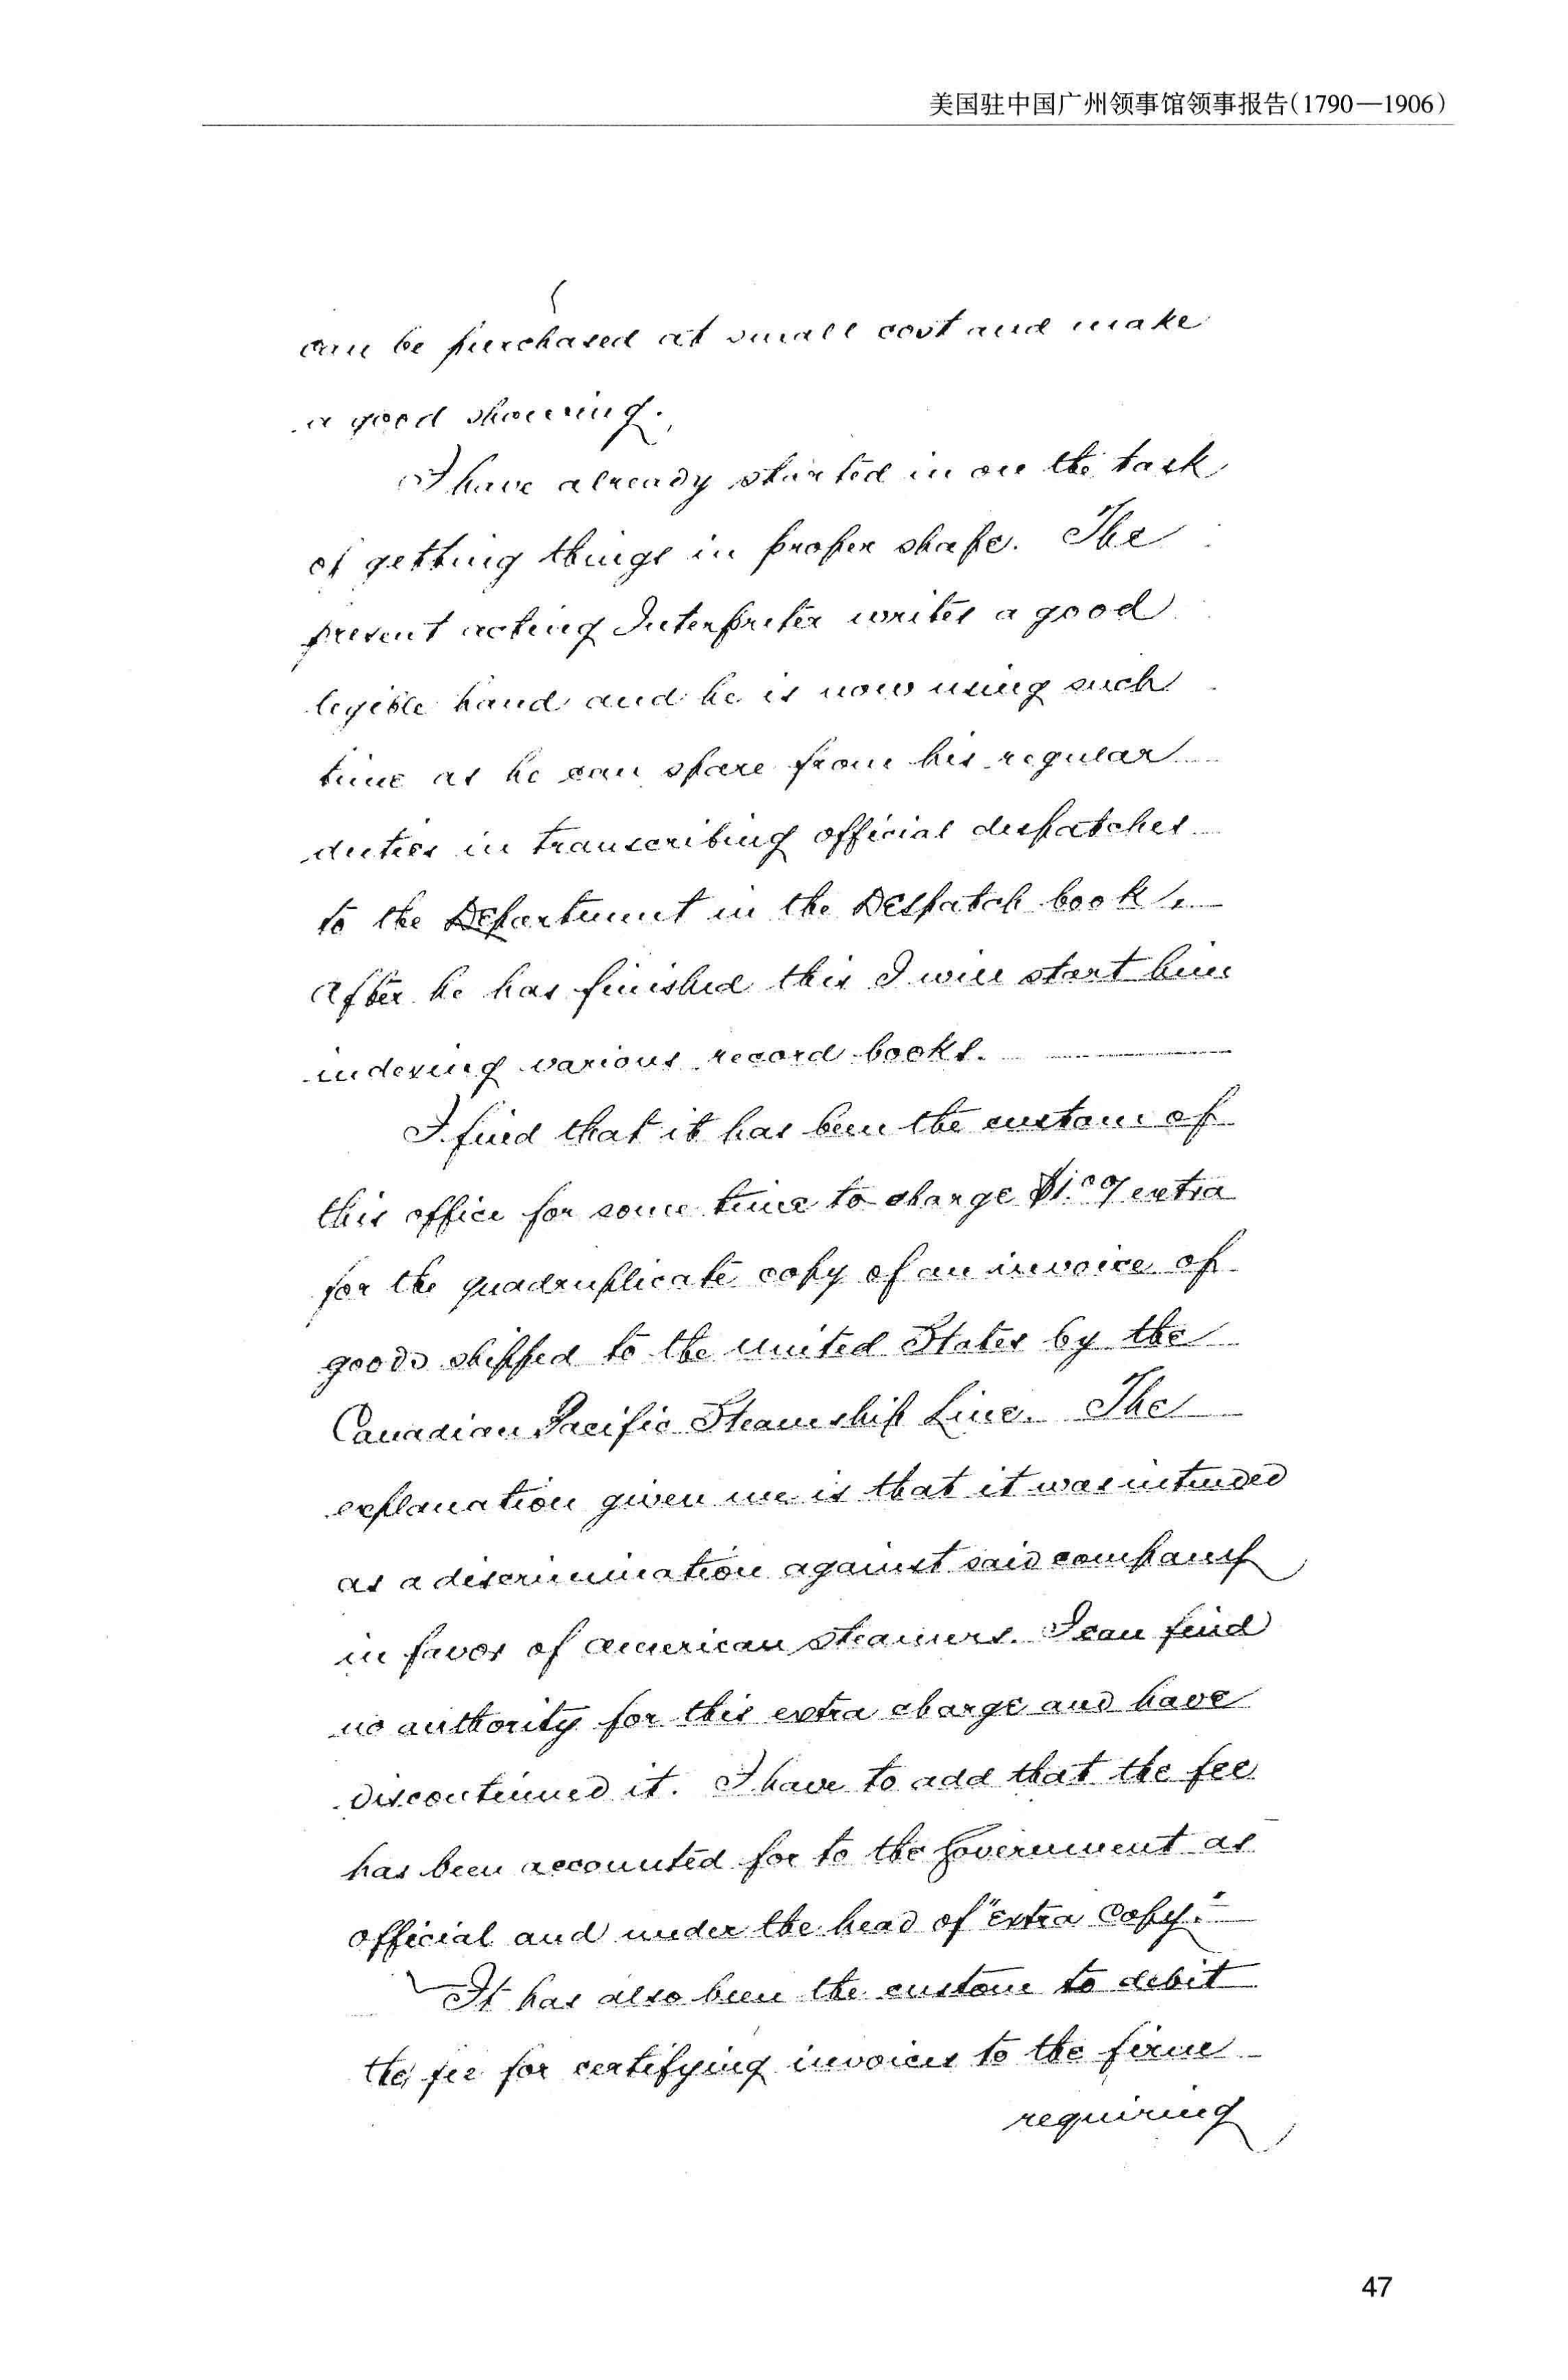 美国驻中国广州领事馆领事报告(1790—1906)
can be purchased at small cost and make
a good showing.
I have already started in on the task
of getting things in proper shape. The
present acting Interpreter writes a good
legible hand and he is now using such
time as he can spare from his regular
duties in transcribing official despatches
to the Department in the Despatch book.
After he has finished this I will start him
indexing various record books.
I find that it has been the custom of
this office for some time to charge $1.00 extra
for the quadruplicate copy of an invoice of
goods shipped to the United States by the
Canadian Pacific Steamship Line. The
explanation given me is that it was intended
as a discrimination against said company
in favor of American steamers. I can find
no authority for this extra charge and have
discontinued it. I have to add that the fee
has been accounted for to the Government as
official and under the head of "Extra Copy."
It has also been the custom to debit
the fee for certifying invoices to the firm
requiring
47